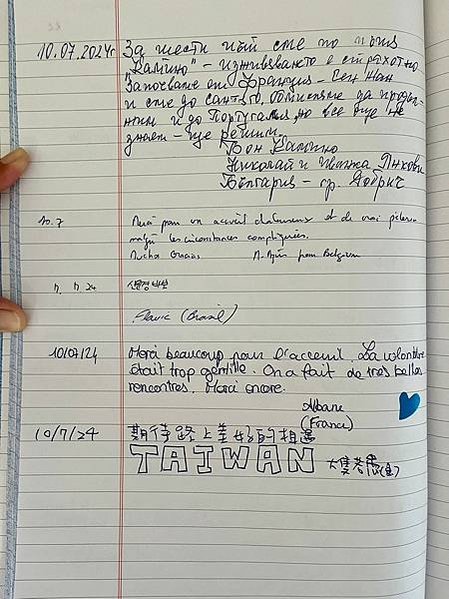 10.07.2024г За шести път сме по пътя
"Камино" - изживяването е страхотно
Започваме от Франция - Сен Жан
и сме до Сантяго, обмисляме да продъл-
жим и до Португалия, но все още не
знаем - ще решим.
Бон Камино
Николай и Иванка Янкови
България - гр. Добрич
10.7 Merci pour un accueil chaleureux et de vrai pèlerin
malgré les circonstances compliquées.
Mucha Gracias from Belgium
24
Flavia (Brasil)
10/07/24 Merci beaucoup pour l'acceuil. La volontaire
était trop gentille. On a fait de très belles
rencontres. Merci encore.
Albane
(France)
10/7/24 期待路上美好的相遇
TAIWAN 大隻